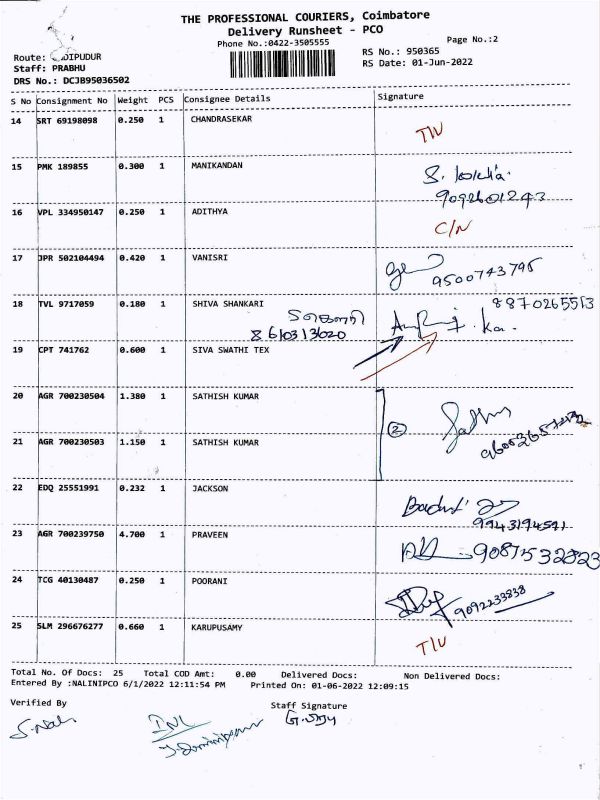 THE PROFESSIONAL COURIERS, Coimbatore
Delivery Runsheet - PCO
Phone No.:0422-3505555
Page No.:2
Route: DIPUDUR
RS No.: 950365
Staff: PRABHU
RS Date: 01-Jun-2022
DRS No.: DCJB95036502
S No Consignment No Weight PCS Consignee Details Signature
14 SRT 69198098 0.250 1 CHANDRASEKAR
15 PMK 189855 0.300 1 MANIKANDAN
9092601243
16 VPL 334950147 0.250 1 ADITHYA
C/N
17 JPR 502104494 0.420 1 VANISRI
9500743795
18 TVL 9717059 0.180 1 SHIVA SHANKARI
8870265513
8610313020
19 CPT 741762 0.600 1 SIVA SWATHI TEX
20 AGR 700230504 1.380 1 SATHISH KUMAR
2
21 AGR 700230503 1.150 1 SATHISH KUMAR
22 EDQ 25551991 0.232 1 JACKSON
9943194591
23 AGR 700239750 4.700 1 PRAVEEN
24 TCG 40130487 0.250 1 POORANI
9092233838
25 SLM 296676277 0.660 1 KARUPUSAMY
Total No. Of Docs: 25 Total COD Amt: 0.00 Delivered Docs: Non Delivered Docs:
Entered By :NALINIPCO 6/1/2022 12:11:54 PM Printed On: 01-06-2022 12:09:15
Verified By Staff Signature